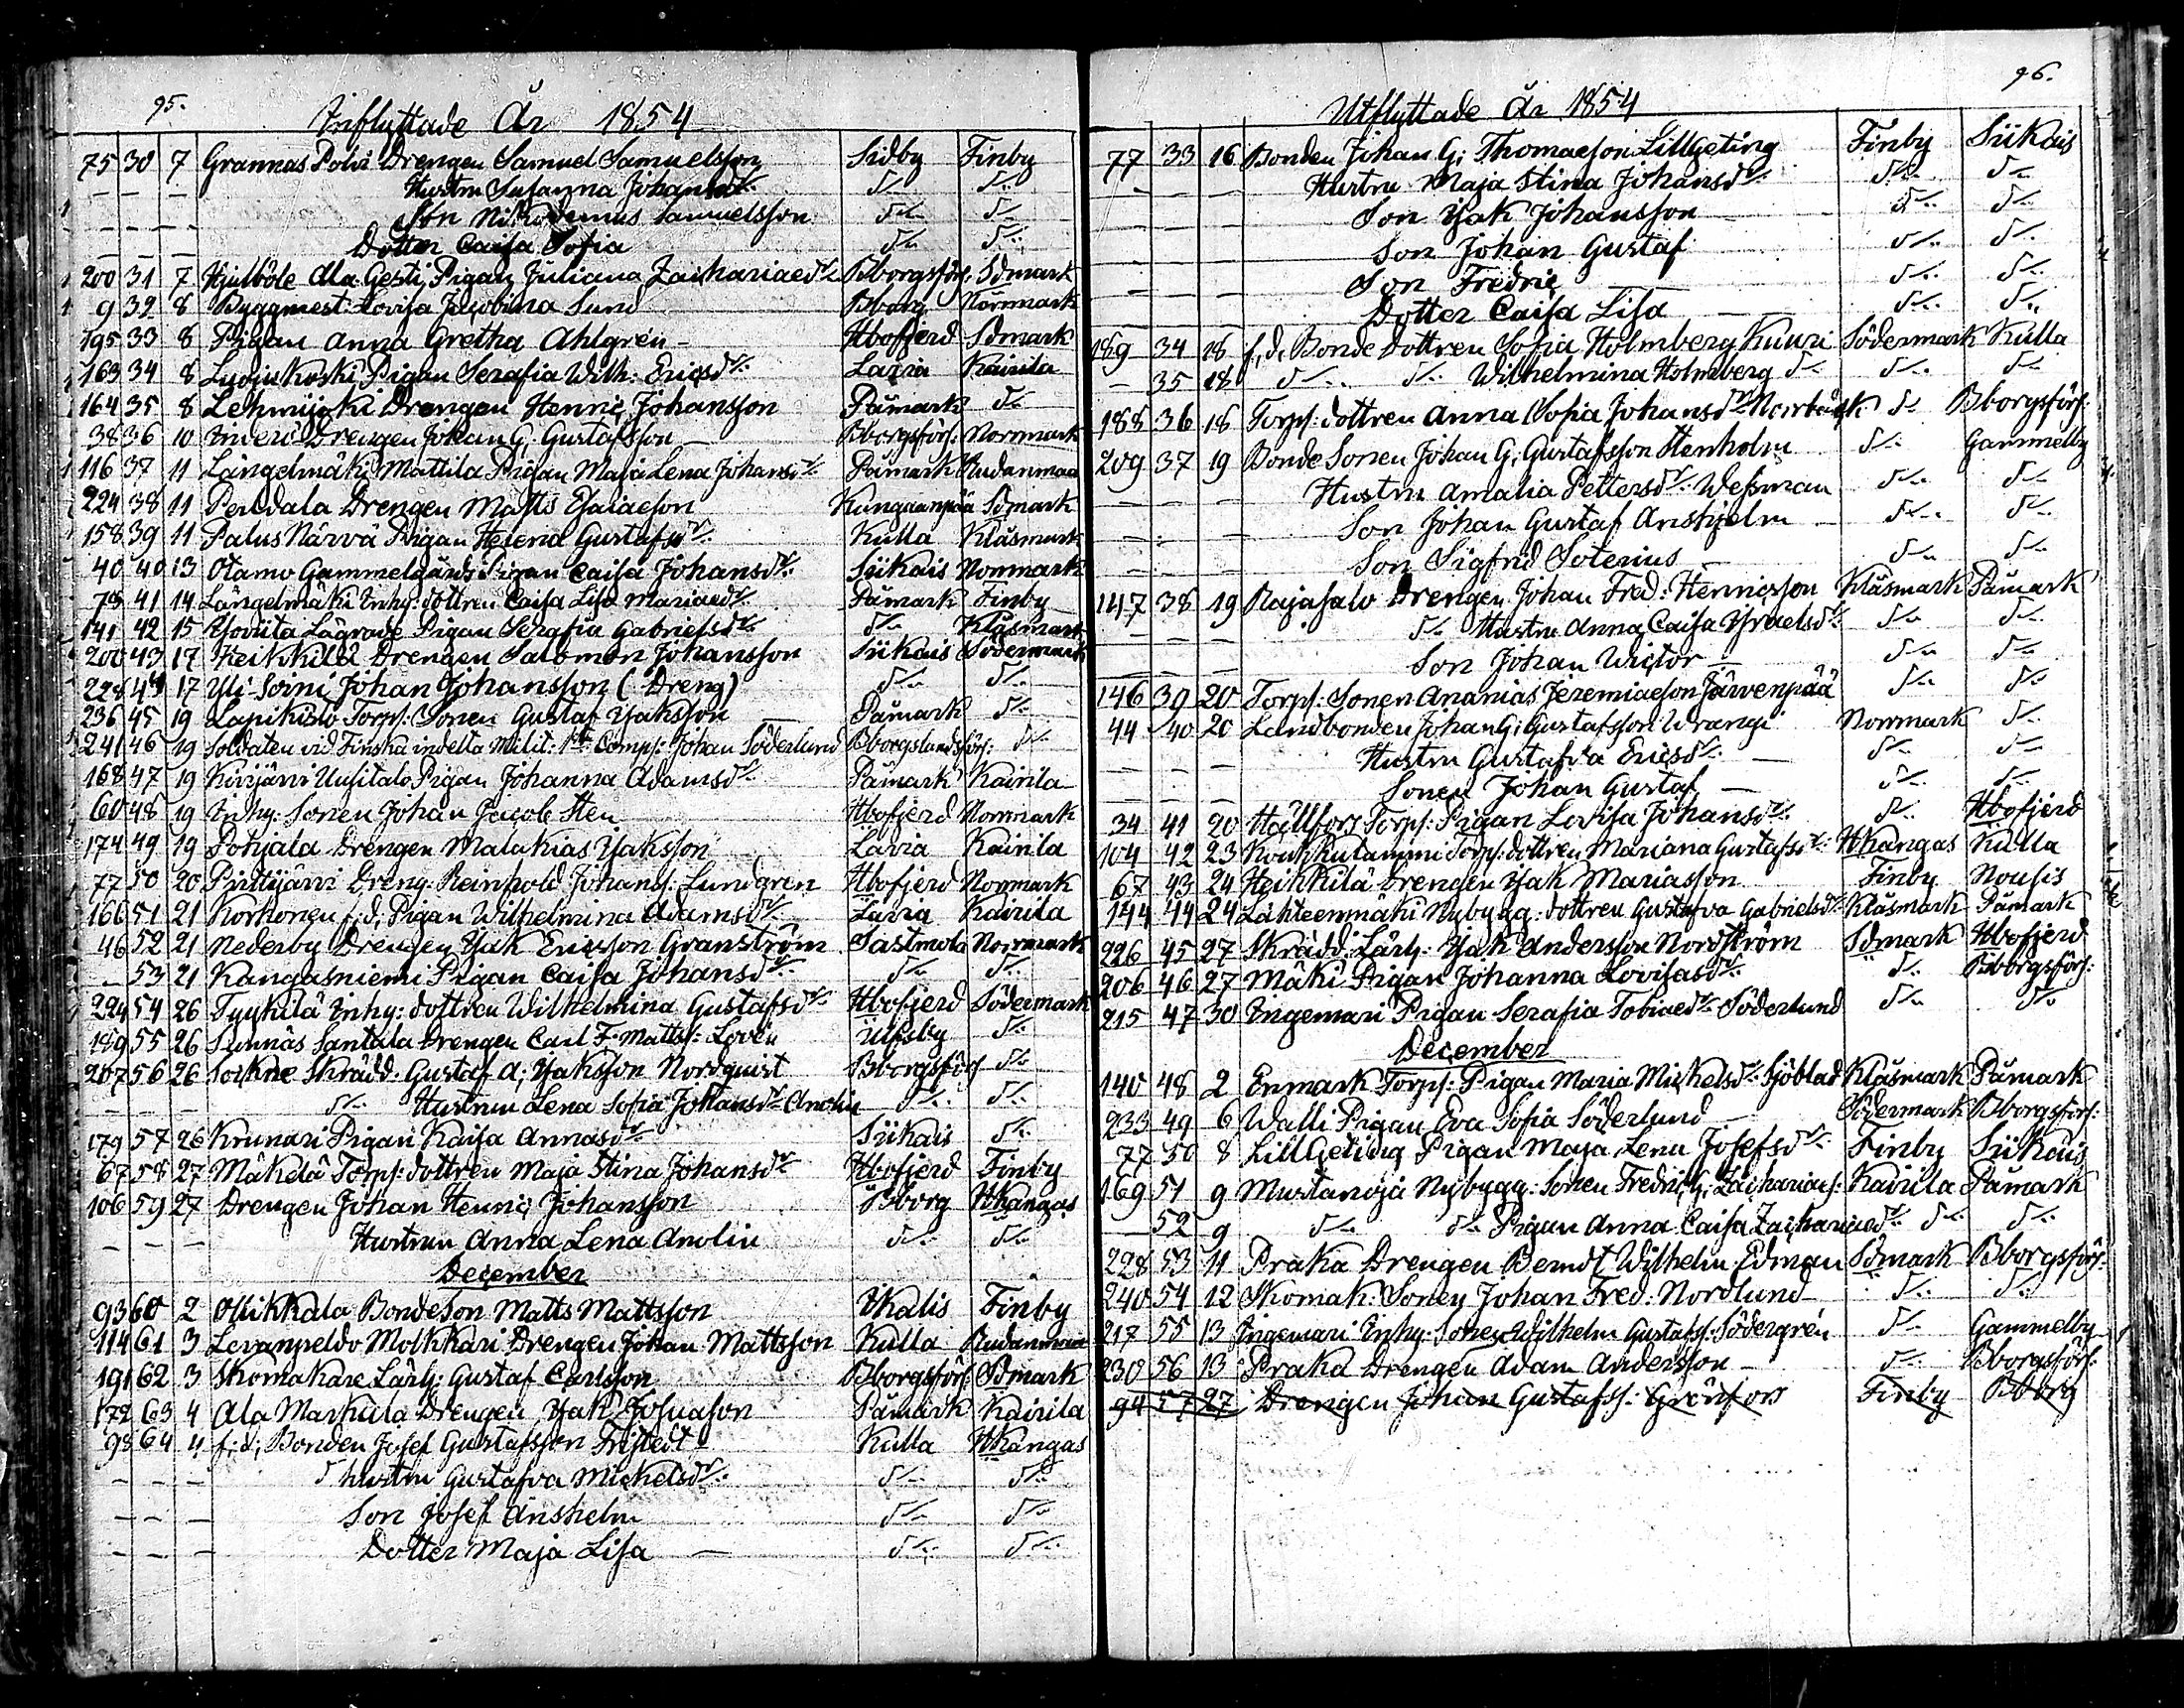 95.
Inflyttade År 1854
75 30 7 Grannas Polvi Drengen Samuel Samuelsson Sidby Finby
— — — Hustru Susanna Johansdr: do do
— — — Son Nikodemus Samuelsson do do
— — — Dotter Caisa Sofia do do
200 31 7 Ala Gesti Pigan Juliana Zachariaedr Bborgsförs: Sdmark
9 32 8 Byggmest: Lovisa Jacobina Sund Bborg Norrmark
195 33 8 Pigan Anna Gretha Ahlgrén — Hbofjerd Sdmark
163 34 8 Pigan Serafia Wilh: Ericsdr: Lavia Kairila
164 35 8 Lehmijoki Drengen Henric Johansson Påmark do
38 36 10 Drengen Johan G: Gustafsson — Bborgsförs: Norrmark
116 37 11 Längelmäki Mattila Pigan Maja Lena Johansdr: Påmark Rudanmaa
224 38 11 Drengen Matts Esaiaeson Kungaanpää Sdmark
158 39 11 Palus Närvä Pigan Helena Gustafsdr: Kulla Klåsmark
40 40 13 Otamo Gammelgårds Pigan Caisa Johansdr: Siikais Norrmark
78 41 14 Längelmäki Inhy: dottren Caisa Lisa Mariaedr: Påmark Finby
141 42 15 Pigan Serafia Gabrielsdr: do Klåsmark
200 43 17 Heikkilä Drengen Salomon Johansson Siikais Södermark
228 44 17 Yli Soini Johan Johansson (Dreng) do do
236 45 19 Lapikisto Torp: Sonen Gustaf Isaksson Påmark do
241 46 19 Soldaten vid Finska indelta Milit: 1sta Comp: Johan Söderlund Bborgslandsförs: do
168 47 19 Kivijärvi Uusitalo Pigan Johanna Adamsdr: Påmark Kairila
60 48 19 Inhy: Sonen Johan Jacob Sten Hbofjerd Norrmark
174 49 19 Pohjala Drengen Malakias Isaksson Lavia Kairila
77 50 20 Pirttijärvi Dreng: Reinhold Johans: Lundgren Hbofjerd Norrmark
166 51 21 Korkonen f. d. Pigan Wilhelmina Adamsdr: Lavia Kairila
46 52 21 Nederby Drengen Isak Ericsson Granström Sastmola Norrmark
— 53 21 Kangasniemi Pigan Caisa Johansdr: do do
224 54 26 Tyykilä Inhy: dottren Wilhelmina Gustafsdr Hbofjerd Södermark
189 55 26 Sunnäs Santala Drengen Carl F. Matts: Lovén Ulfsby do
207 56 26 Sockne Skrädd: Gustaf A: Isaksson Nordquist Bborgsförs do
— — — do Hustrun Lena Sofia Johansdr Anolin do do
179 57 26 Krunari Pigan Kaisa Annasdr: Siikais do
67 58 27 Mäkelä Torp: dottren Maja Stina Johansdr Hbofjerd Finby
106 59 27 Drengen Johan Henric Johansson Bborg Hkangas
— — — Hustrun Anna Lena Anolin do do
December
93 60 2 Ollikkala Bondeson Matts Mattsson Ikalis Finby
114 61 3 Levanpeldo Molkkari Drengen Johan Mattsson Kulla Rudanmaa
191 62 3 Skomakare Lärl: Gustaf Carlsson Bborgsförs: Sdmark
172 63 4 Ala Markula Drengen Isak Josuason Påmark Kairila
98 64 4 f: d: Bonden Josef Gustafsson Fristedt Kulla Hkangas
— — — do hustru Gustafva Michelsdr: do do
— — — Son Josef Anshelm do do
— — — Dotter Maja Lisa — do do
96.
Utflyttade År 1854
77 33 16 Bonden Johan G: Thomaeson Lillgeting Finby Siikais
— — — Hustru Maja Stina Johansdr: do do
— — — Son Isak Johansson do do
— — — Son Johan Gustaf do do
— — — Son Fredric do do
— — — Dotter Caisa Lisa — do do
189 34 18 f. d. Bonde dottren Sofia Holmberg Kuuri Södermark Kulla
— 35 18 do do Wilhelmina Holmberg do do do
188 36 18 Torp: dottren Anna Sofia Johansdr Norrbäck do Bborgsförs:
209 37 19 Bonde Sonen Johan G: Gustafsson Stenholm do Gammelby
— — — Hustru Amalia Pettersdr: Wessman do do
— — — Son Johan Gustaf Anshelm — do do
— — — Son Sigfrid Soterius — do do
147 38 19 Rajasalo Drengen Johan Fred: Henricsson Klåsmark Påmark
— — — do Hustru Anna Caisa Israelsdr do do
— — — Son Johan Wictor — do do
146 39 20 Torp: Sonen Ananias Jeremiaeson Järvenpää do do
44 40 20 Landbonden Johan G: Gustafsson Wrangi Norrmark do
— — — Hustru Gustafva Ericsdr: — do do
— — — Sonen Johan Gustaf — do do
34 41 20 Hällfors Torp: Pigan Lovisa Johansdr: do Hbofjerd
104 42 23 Torp: dottren Mariana Gustafsdr: Hkangas Kulla
67 43 24 Heikkilä Drengen Isak Mariasson Finby Nousis
144 44 24 Lähteenmäki Nybygg: dottren Gustafva Gabrielsdr: Klåsmark Påmark
226 45 27 Skrädd: Lärl: Isak Andersson Nordström Sdmark Hbofjerd
206 46 27 Mäki Pigan Johanna Lovisasdr: do Bborgsförs:
215 47 30 Ingemari Pigan Serafia Tobiaedr Söderlund do do
December
140 48 2 Enmark Torp: Pigan Maria Michelsdr: Sjöblad Klåsmark Påmark
233 49 6 Walli Pigan Eva Sofia Söderlund — Södermark Bborgsförs:
77 50 8 Lillgeting Pigan Maja Lena Josefsdr: Finby Siikais
169 51 9 Mustanoja Nybygg: Sonen Fredric G: Zacharias: Kairila Påmark
— 52 9 do do Pigan Anna Caisa Zachariaedr: do do
228 53 11 Praka Drengen Berndt Wilhelm Edman Sdmark Bborgsförs:
240 54 12 Skomak: Sonen Johan Fred: Nordlund do do
217 55 13 Ingemari Inhy: Sonen Wilhelm Gustafs: Södergrén do Gammelby
230 56 13 Praka Drengen Adam Andersson — do Bborgsförs:
94 57 27 Drengen Johan Gustafss: Grönfors Finby Bborg